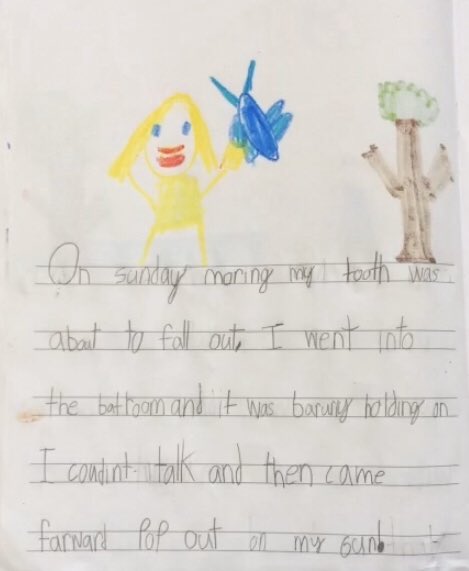 On sunday moring my tooth was
about to fall out. I went into
the batroom and it was baruny holding on
I coudint talk and then came
farward Pop out on my